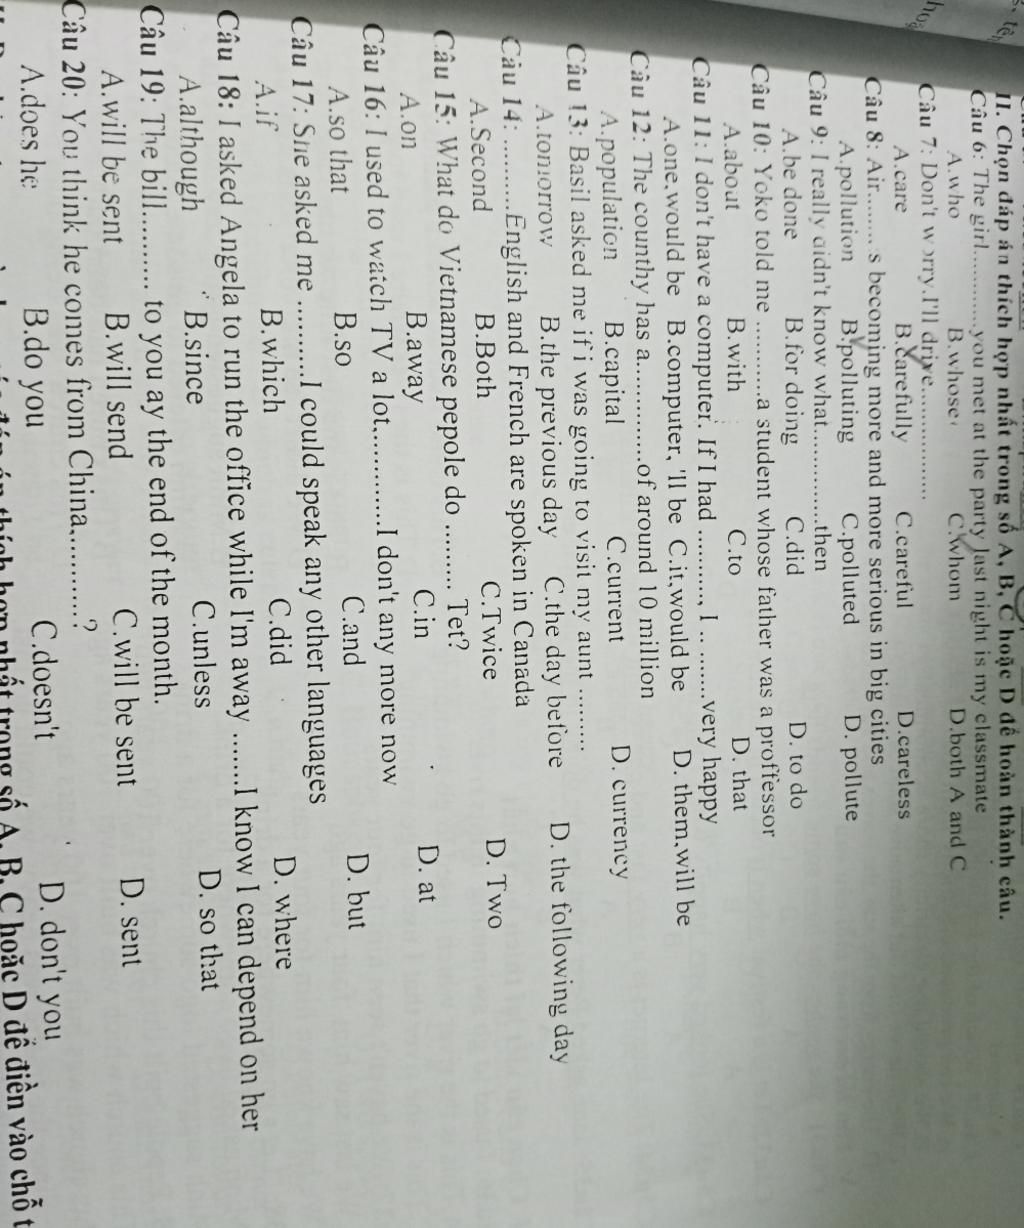 II. Chọn đáp án thích hợp nhất trong số A, B, C hoặc D để hoàn thành câu.
Câu 6: The girl..........you met at the party last night is my classmate
A.who B.whose C.whom D.both A and C
Câu 7: Don't worry.I'll drive................
A.care B.carefully C.careful D.careless
Câu 8: Air........'s becoming more and more serious in big cities
A.pollution B.polluting C.polluted D. pollute
Câu 9: I really didn't know what.............then
A.be done B.for doing C.did D. to do
Câu 10: Yoko told me ...........a student whose father was a proffessor
A.about B.with C.to D. that
Câu 11: I don't have a computer. If I had .........., I .. ........very happy
A.one,would be B.computer, 'll be C.it,would be D. them,will be
Câu 12: The counthy has a.............of around 10 million
A.population B.capital C.current D. currency
Câu 13: Basil asked me if i was going to visit my aunt .........
A.tomorrow B.the previous day C.the day before D. the following day
Câu 14: ..........English and French are spoken in Canada
A.Second B.Both C.Twice D. Two
Câu 15: What do Vietnamese pepole do ......... Tet?
A.on B.away C.in D. at
Câu 16: I used to watch TV a lot.............I don't any more now
A.so that B.so C.and D. but
Câu 17: She asked me ..........I could speak any other languages
A.if B.which C.did D. where
Câu 18: I asked Angela to run the office while I'm away .......I know I can depend on her
A.although B.since C.unless D. so that
Câu 19: The bill........... to you ay the end of the month.
A.will be sent B.will send C.will be sent D. sent
Câu 20: You think he comes from China,..........?
A.does he B.do you C.doesn't D. don't you